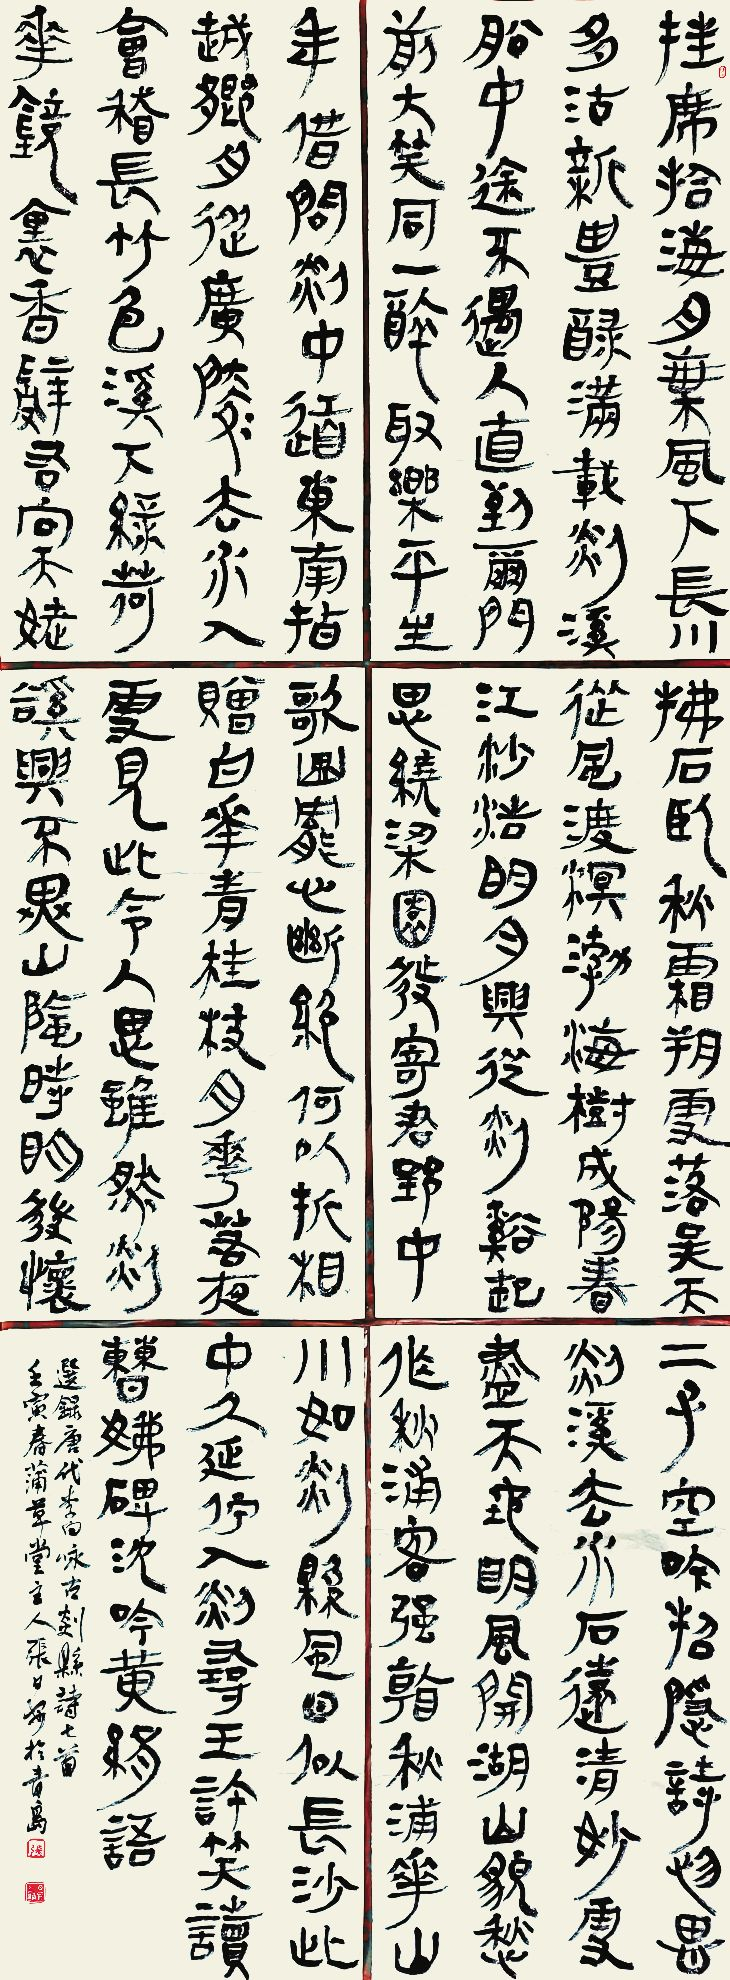 挂席拾海月乘風下長川
多沽新豐醁滿載剡溪
船中途不遇人直到爾門
前大笑同一醉取樂平生
年借問剡中道東南指
越鄉舟從廣陵去水入
會稽長竹色溪下綠荷
華鏡裏香辭君向天姥
拂石臥秋霜朔雪落吳天
從風渡溟渤海樹成陽春
江沙浩明月興從剡谿起
思繞梁園發寄君郢中
歌曲罷心斷絕何以折相
贈白華青桂枝月華若夜
雪見此令人思雖然剡
谿興不異山陰時明發懷
二子空吟招隱詩也畏
剡溪去水石遠清妙雪
盡天地明風開湖山貌愁
作秋浦客强看秋浦華山
川如剡縣風日似長沙此
中久延佇入剡尋王許笑讀
曹娥碑沈吟黄絹語
選錄唐代李白咏古剡縣詩七首
壬寅春蒲草堂主人張日於青島